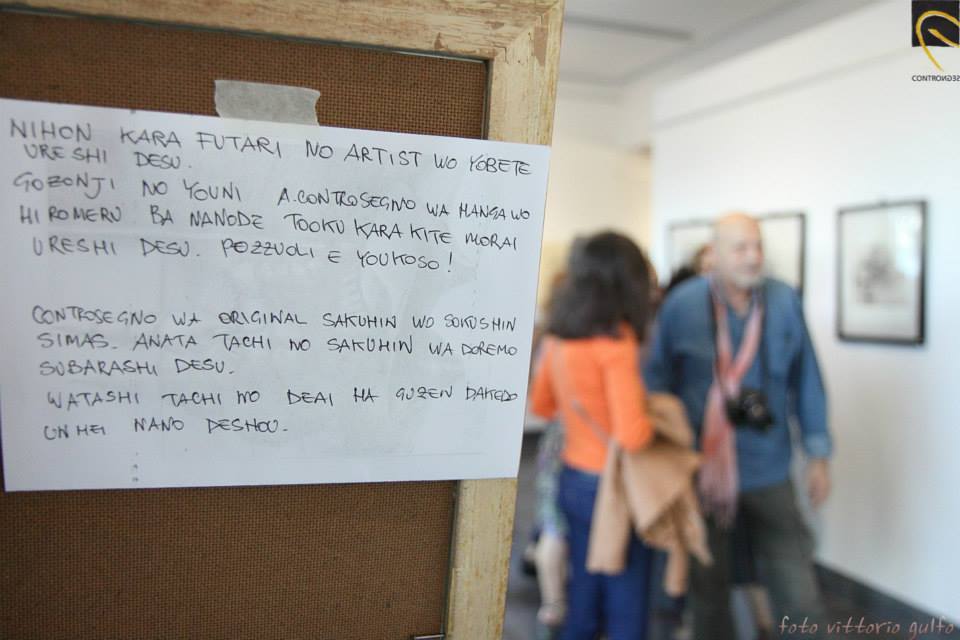 NIHON KARA FUTARI NO ARTIST WO YOBETE
URESHI DESU.
GOZONJI NO YOUNI A.CONTROSEGNO WA MANGA WO
HIROMERU BA NANODE TOOKU KARA KITE MORAI
URESHI DESU. POZZUOLI E YOUKOSO!
CONTROSEGNO WA ORIGINAL SAKUHIN WO SOKUSHIN
SIMAS. ANATA TACHI NO SAKUHIN WA DOREMO
SUBARASHI DESU.
WATASHI TACHI NO DEAI HA GUZEN DAKEDO
UNMEI NANO DESHOU.
CONTROSEGNO
foto vittorio gulfo